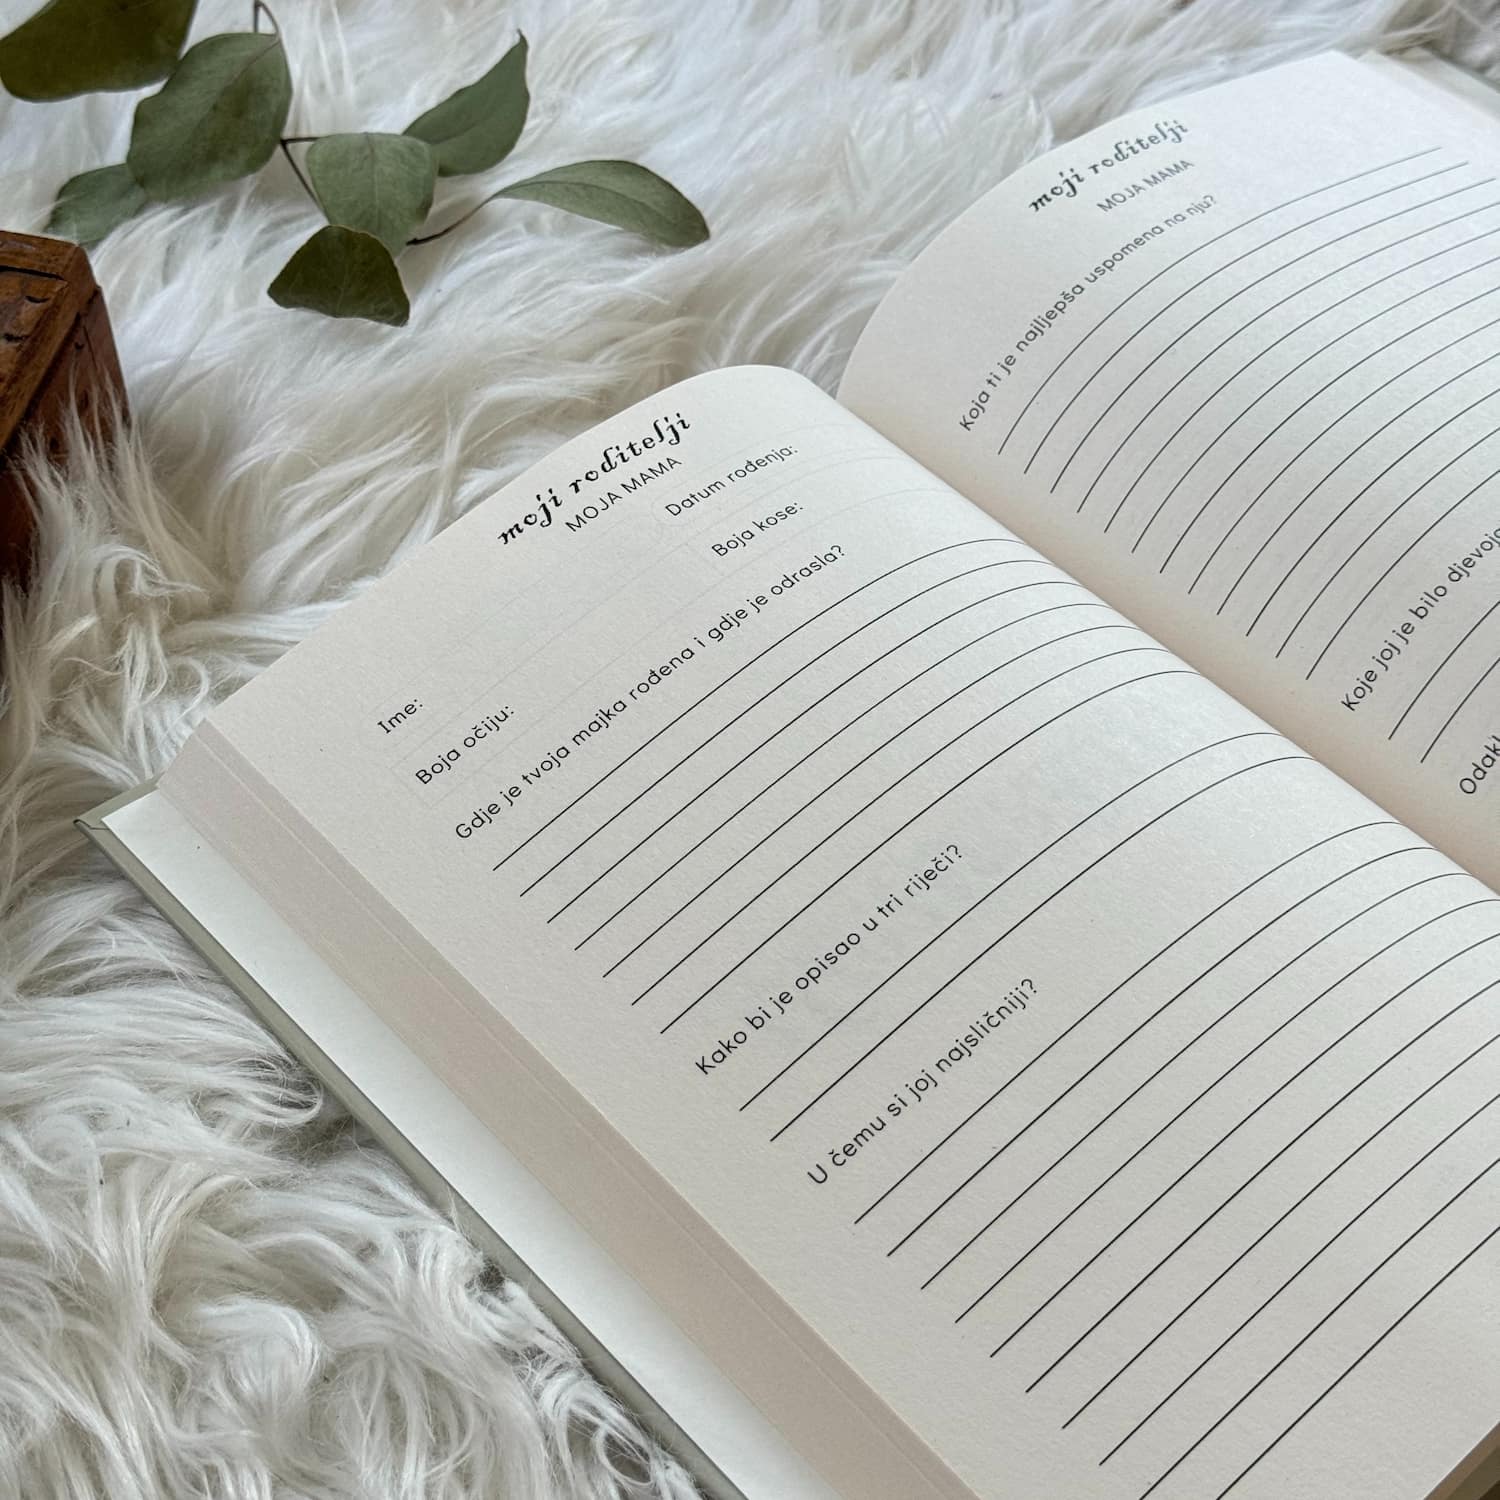 moji roditelji
MOJA MAMA
Ime: Datum rođenja:
Boja očiju: Boja kose:
Gdje je tvoja majka rođena i gdje je odrasla?
Kako bi je opisao u tri riječi?
U čemu si joj najsličniji?
moji roditelji
MOJA MAMA
Koja ti je najljepša uspomena na nju?
Koje joj je bilo